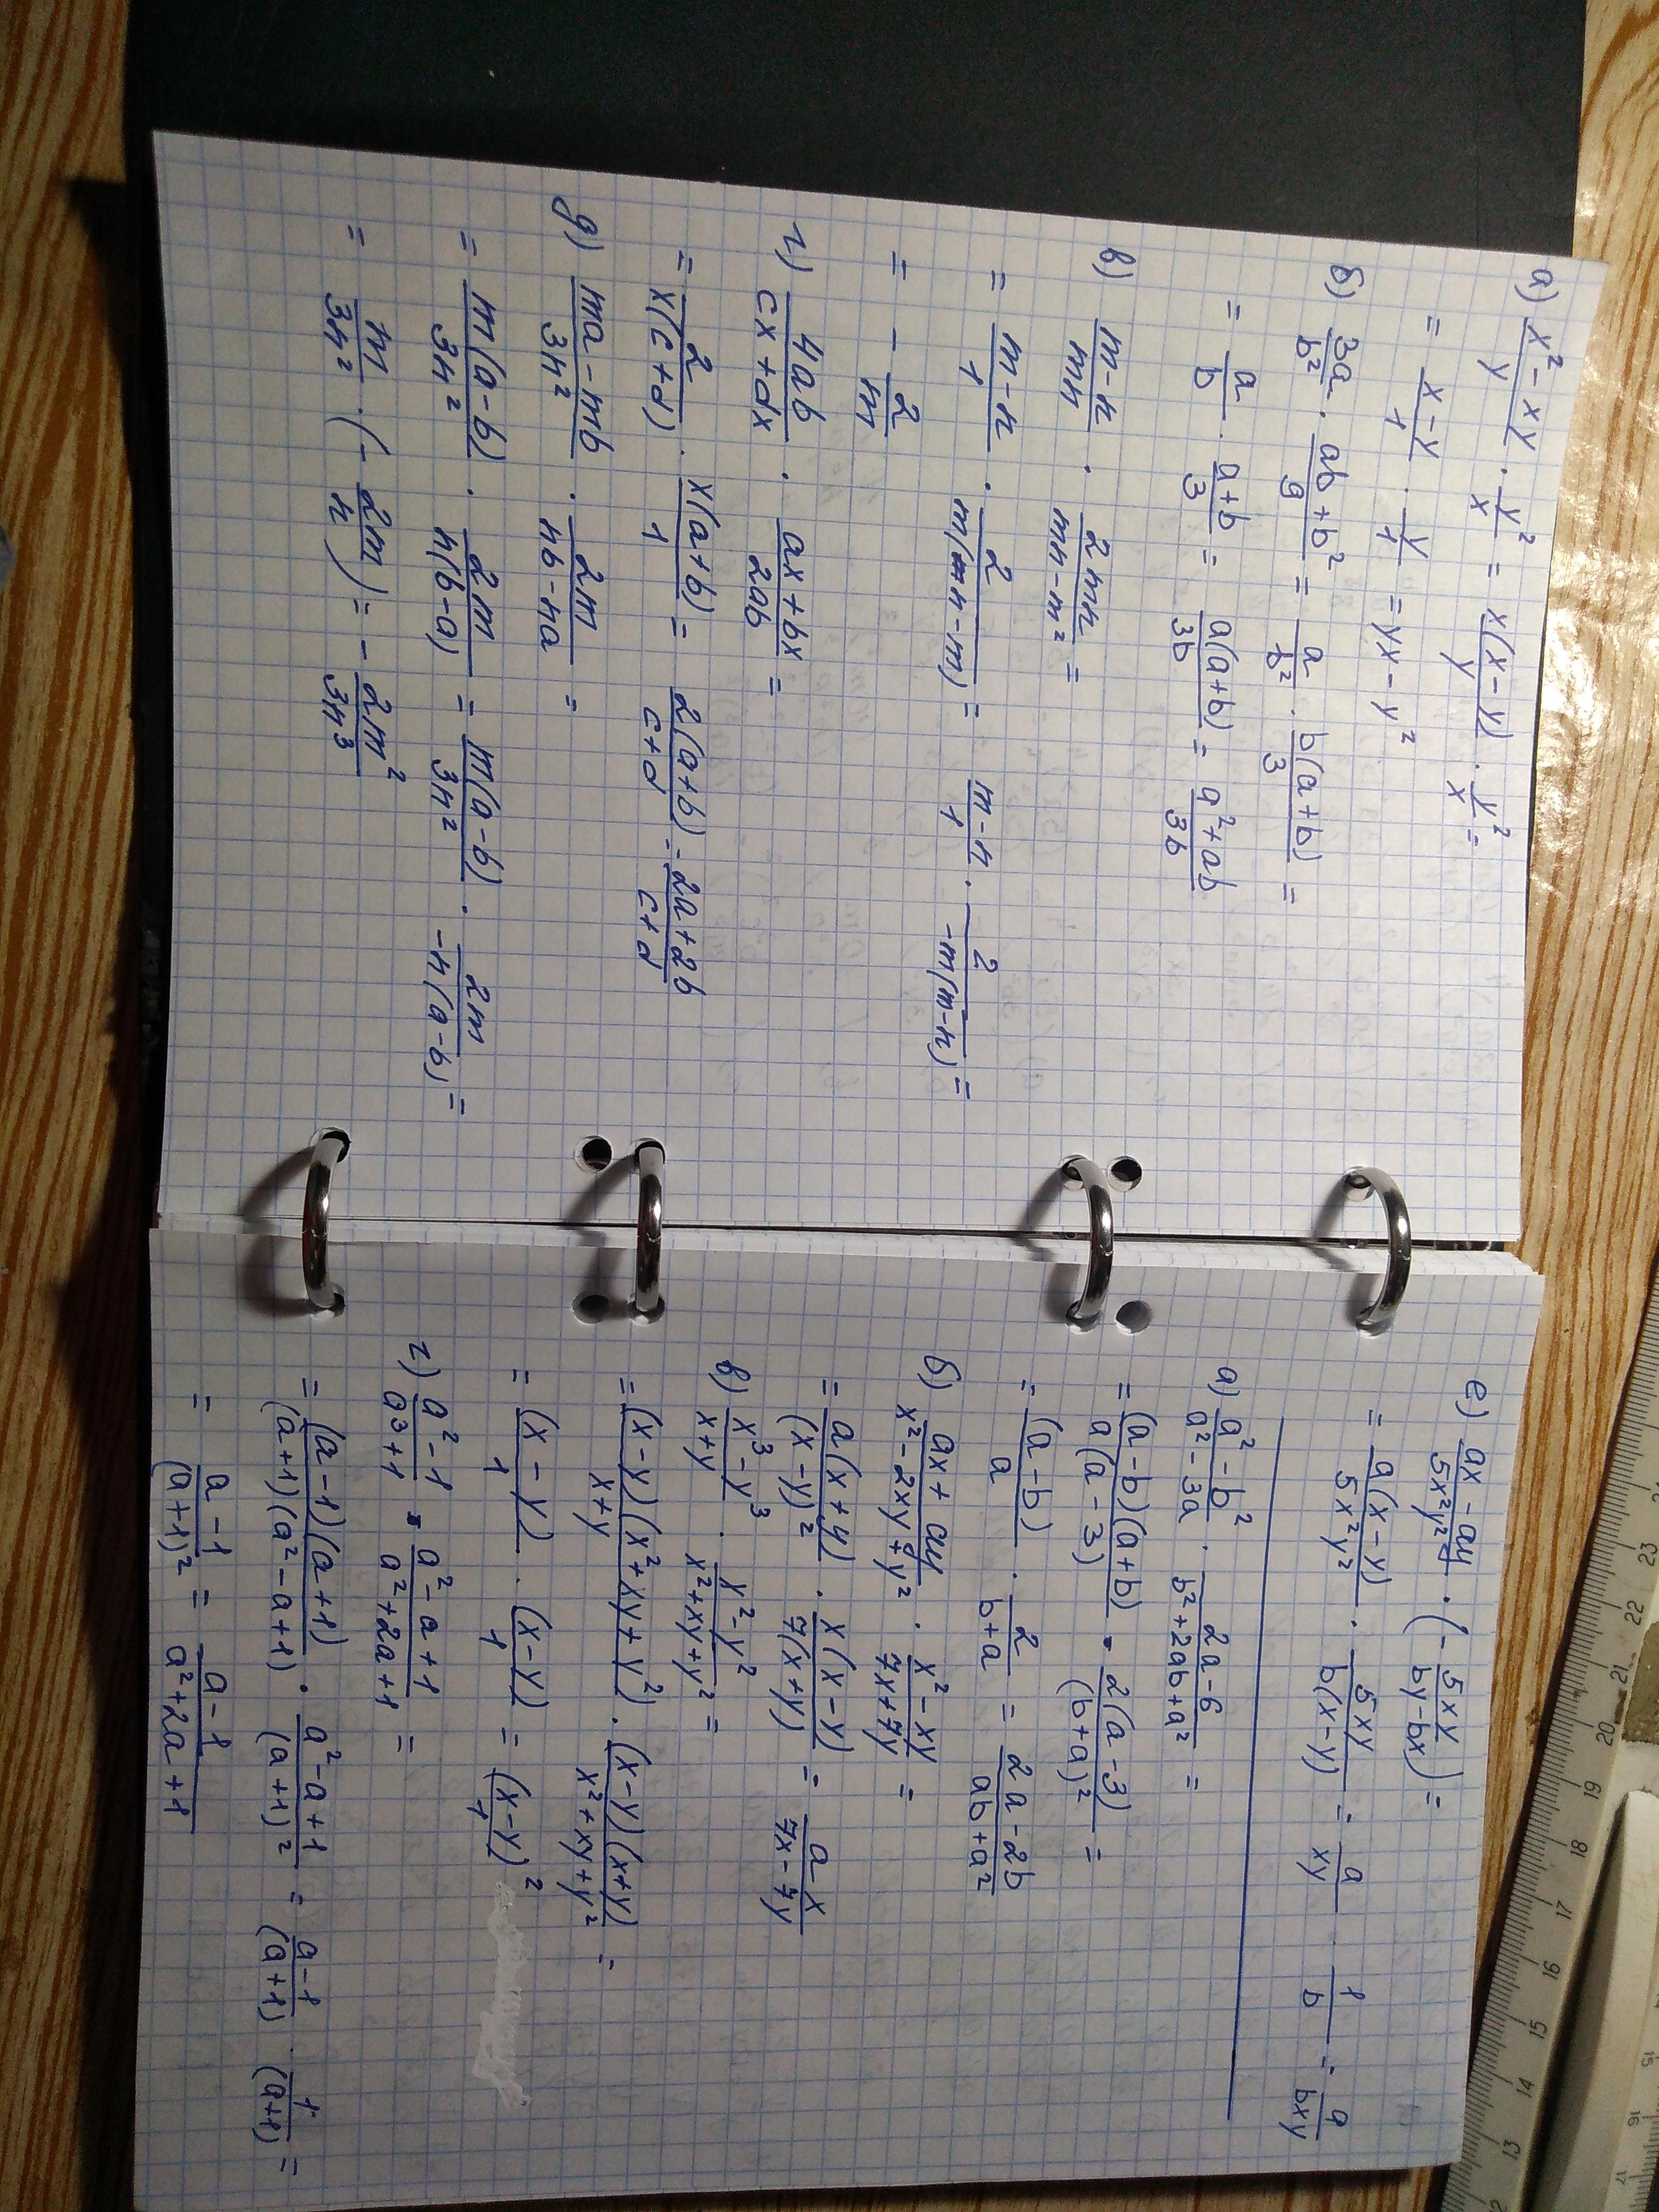 а) (x² - xy)/y · y²/x = x(x - y)/y · y²/x =
= (x - y)/1 · y/1 = yx - y²
б) 3a/b² · (ab + b²)/9 = a/b² · b(a + b)/3 =
= a/b · (a + b)/3 = a(a + b)/3b = (a² + ab)/3b
в) (m - n)/mn · 2mn/(mn - m²) =
= (m - n)/1 · 2/m(n - m) = (m - n)/1 · 2/-m(m - n) =
= - 2/m
г) 4ab/(cx + dx) · (ax + bx)/2ab =
= 2/x(c + d) · x(a + b)/1 = 2(a + b)/(c + d) = (2a + 2b)/(c + d)
д) (ma - mb)/3n² · 2m/(nb - na) =
= m(a - b)/3n² · 2m/n(b - a) = m(a - b)/3n² · 2m/-n(a - b) =
= m/3n² · (- 2m/n) = - 2m²/3n³
е) (ax - ay)/5x²y² · (- 5xy/(by - bx)) =
= a(x - y)/5x²y² · 5xy/b(x - y) = a/xy 1/b = a/bxy
а) (a² - b²)/(a² - 3a) · (2a - 6)/(b² + 2ab + a²) =
= (a - b)(a + b)/a(a - 3) · 2(a - 3)/(b + a)² =
= (a - b)/a · 2/(b + a) = (2a - 2b)/(ab + a²)
б) (ax + ay)/(x² - 2xy + y²) · (x² - xy)/(7x + 7y) =
= a(x + y)/(x - y)² · x(x - y)/7(x + y) = a x/(7x - 7y)
в) (x³ - y³)/(x + y) · (x² - y²)/(x² + xy + y²) =
= (x - y)(x² + xy + y²)/(x + y) · (x - y)(x + y)/(x² + xy + y²) =
= (x - y)/1 · (x - y)/1 = (x - y)²/1
г) (a² - 1)/(a³ + 1) · (a² - a + 1)/(a² + 2a + 1) =
= (a - 1)(a + 1)/(a + 1)(a² - a + 1) · (a² - a + 1)/(a + 1)² = (a - 1)/(a + 1) 1/(a + 1) =
= (a - 1)/(a + 1)² = (a - 1)/(a² + 2a + 1)
23
22
21
20
19
18
17
16
15
14
13
15
16
17